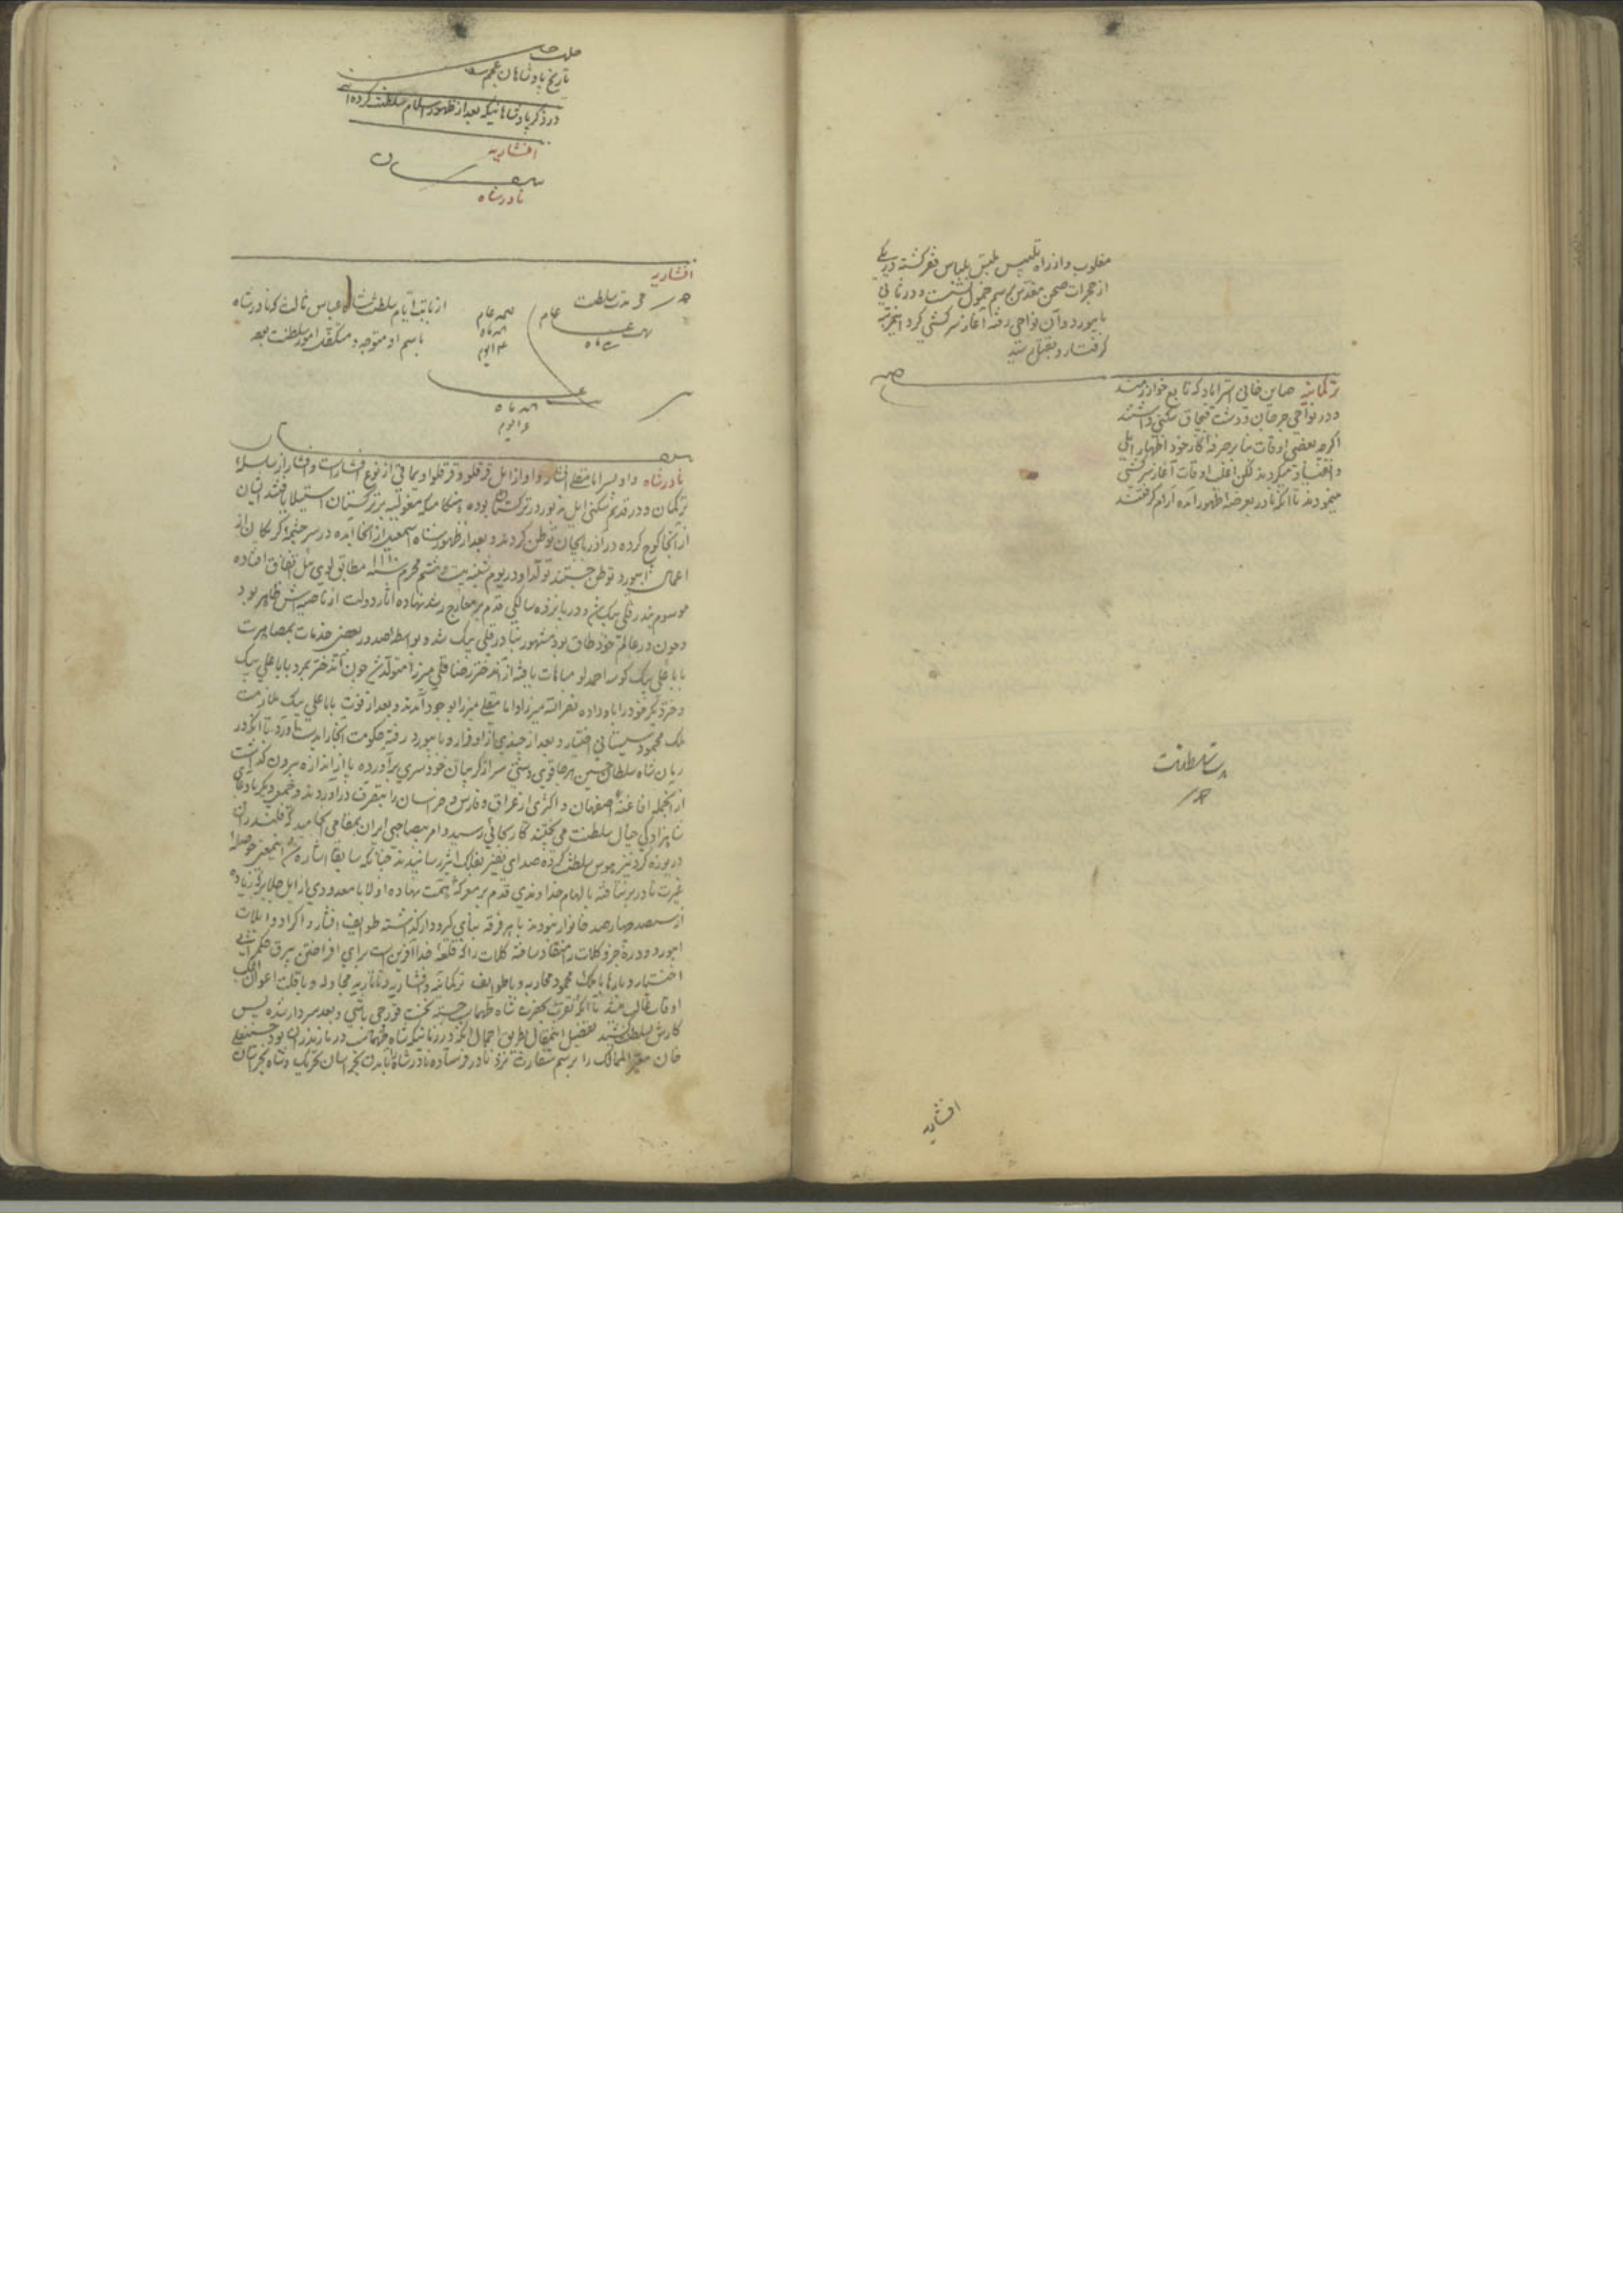 مغلوب و از راه تلبیس ملبس بلباس فقر گشته در یکی
از حجرات صحن مقدس برسم خمول نشست و در ثانی
بابیورد و آن نواحی رفته آغاز سرکشی کرد اینمرتبه
گرفتار و بقتل رسید
ترکمانیه صاین خانی استراباد که تابع خوارزمند
و در نواحی جرجان و دشت قبچاق سکنی داشتند
اگرچه بعضی اوقات بنا بر صرفه کار خود اظهار ایلی
و انقیاد میکردند لکن اغلب اوقات آغاز سرکشی
مینمودند تا آنکه نادر بعرصه ظهور آمده آرام گرفتند
سلطنت
افشاریه
تاریخ پادشاهان عجم
در ذکر پادشاهانیکه بعد از ظهور اسلام سلطنت کرده اند
افشاریه
نادرشاه
افشاریه
مدت سلطنت
از بابت ایام سلطنت شاه عباس ثالث که نادرشاه
باسم او متوجه و متکفل امور سلطنت بود
نادرشاه و او پسر امامقلی افشار و او از ایل قرقلو و قرقلو اویماقی از نوع افشار است و افشار از سلسله
ترکمان و در قدیم سکنی ایل مزبور در ترکستان بوده هنگامیکه مغولیه بر ترکستان استیلا یافتند ایشان
از آنجا کوچ کرده در آذربایجان توطن کردند و بعد از ظهور شاه اسمعیل از آنجا آمده در سرچشمه کوبکان از
اعمال ابیورد توطن جستند تولد او در یوم شنبه بیست و هشتم محرم سنه ۱۱۰۰ مطابق لوی ئیل اتفاق افتاده
موسوم بندرقلی بیک شد و در پانزده سالگی قدم بر معارج رشد نهاده آثار دولت از ناصیه اش ظاهر بود
و چون در عالم خود طاق بود مشهور بنادرقلی بیک شد و بواسطه صدور بعضی خدمات بمصاهرت
باباعلی بیک کوسه احمدلو مباهات یافته از آن دختر رضاقلی میرزا متولد شد چون آن دختر بمرد باباعلی بیک
دختر دیگر خود را باو داده نصرالله میرزا و امامقلی میرزا بوجود آمدند و بعد از فوت باباعلی بیک ملازمت
ملک محمود سیستانی اختیار و بعد از چندی از او فرار و بابیورد رفته حکومت آنجا را بدست آورد تا آنکه در
زمان شاه سلطان حسین هر جا قوی دستی سر از گریبان خودسری برآورده پا از اندازه بیرون گذاشت
از آنجمله افاغنه اصفهان و اکثری از عراق و فارس و خراسان را بتصرف درآوردند و جمعی دیگر بادعای
شاهزادگی خیال سلطنت می پختند کار بجائی رسید و امر بیصاحبی ایران بمقامی انجامید که قلندران
دریوزه گرد نیز هوس سلطنت کرده صدای نفیر بفلک اثیر رسانیدند چنانکه سابقا اشاره شد اینمعنی حوصله
غیرت نادر برنتافته بالهام خداوندی قدم بر معرکه همت نهاده اولا با معدودی از ایل جلایر که زیاده
از سیصد چهارصد خانوار نبودند با هر فرقه بنای گیرودار گذاشته طوایف افشار و اکراد و ایلات
ابیورد و دره جز و کلات را منقاد ساخته کلات را که قلعه خداآفرین است برای افراختن بیرق حکمرانی
اختیار و بارها با ملک محمود محاربه و با طوایف ترکمانیه و افشاریه و تاتاریه مجادله و با قلت اعوان اکثر
اوقات غالب میشد تا آنکه تقرب بحضرت شاه طهماسب جسته نخست قورچی باشی و بعد سردار شده پس
کارش بسلطنت کشید تفصیل اینمقال بطریق اجمال آنکه در زمانیکه شاه طهماسب در مازندران بود حسینعلی
خان معیرالممالک را برسم سفارت نزد نادر فرستاده نادر شاه را بآمدن بخراسان تحریک و شاه بخراسان